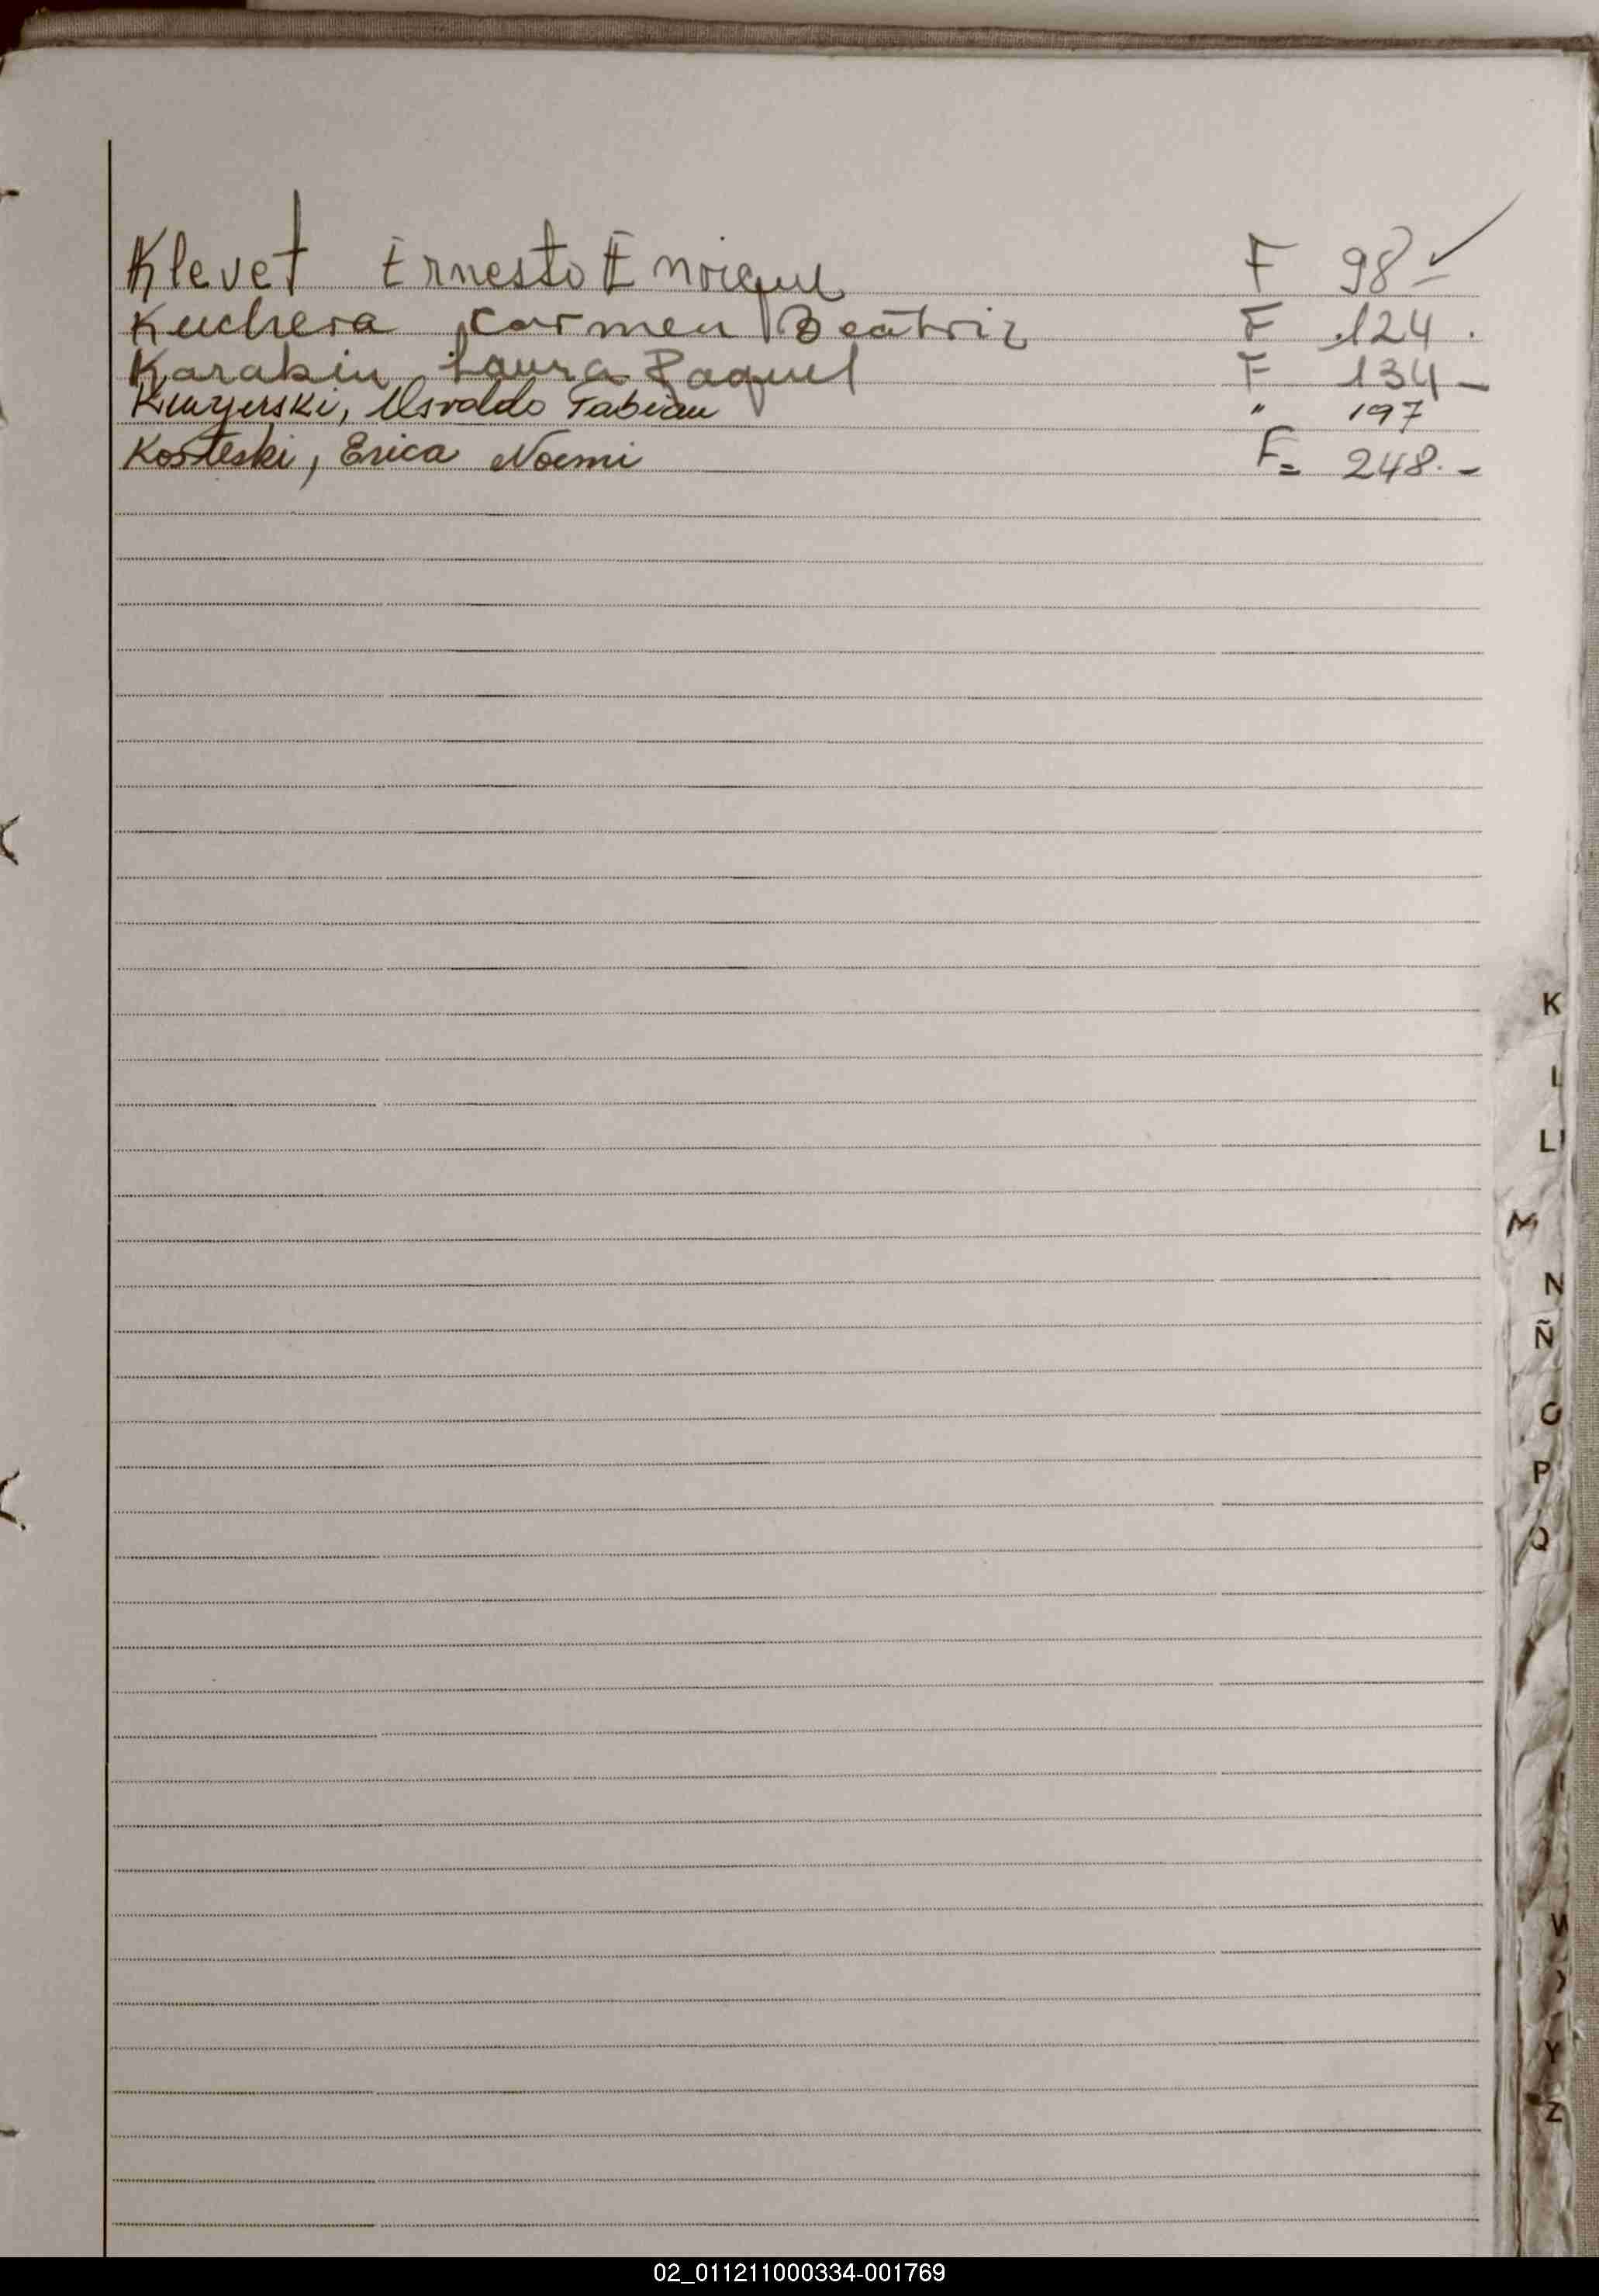 Klevet Ernesto Enrique F 98 -
Kuchera Carmen Beatriz F 124 .
Karabin Laura Raquel F 134 -
Osvaldo Fabian " 197
Kosteski, Erica Noemi F= 248. -
K
L
Ll
M
N
Ñ
O
P
Q
W
Y
Z
02_011211000334-001769